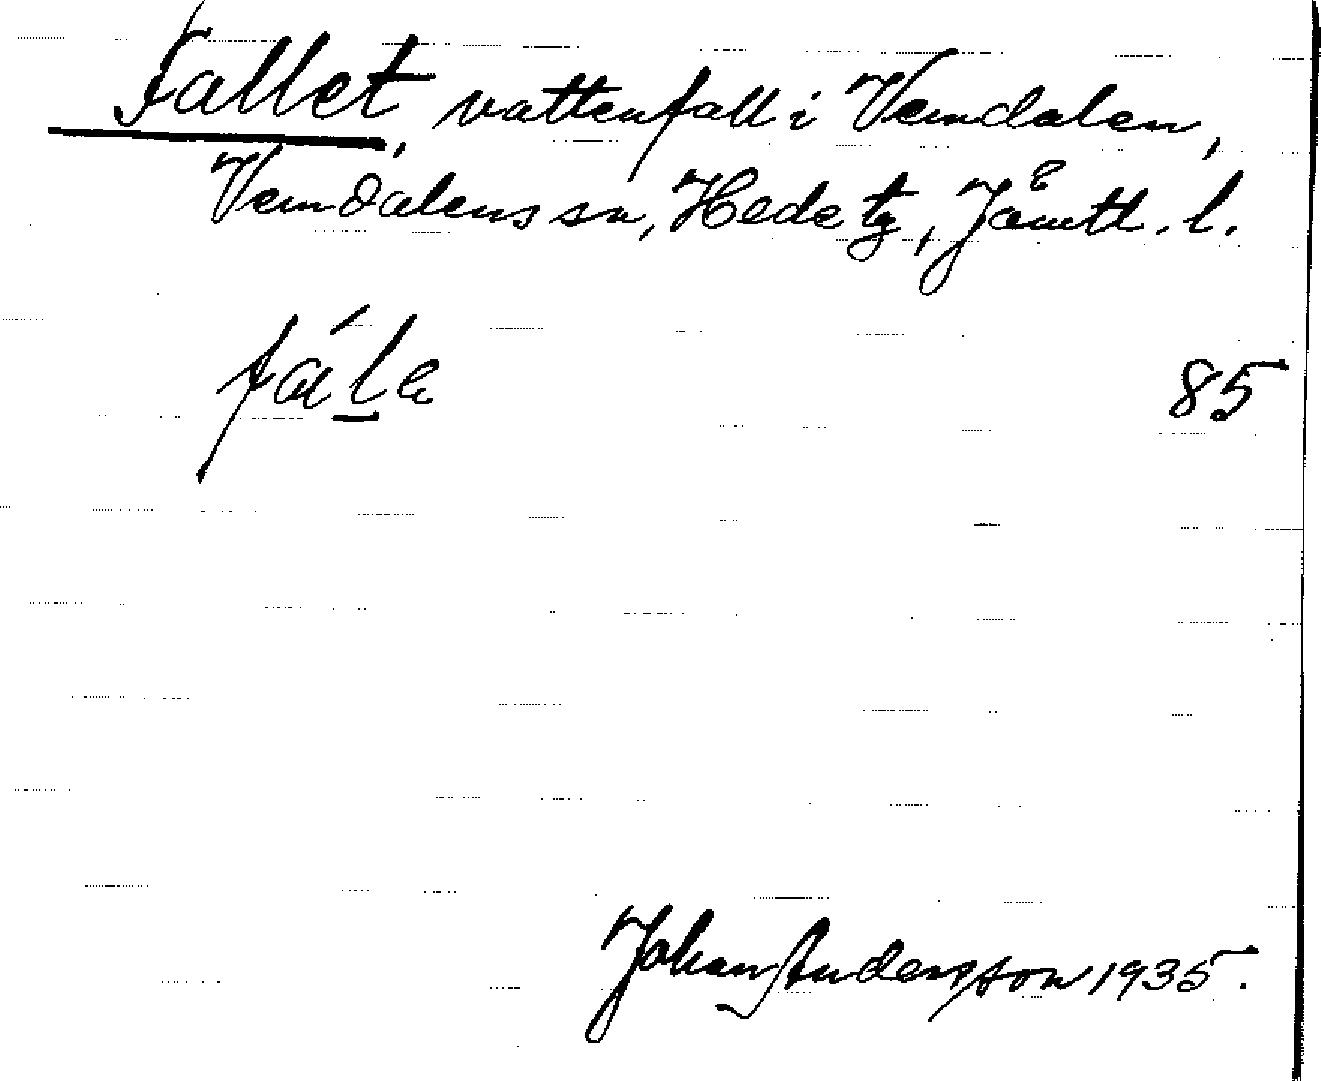 Fallet, vattenfall i Vemdalen,
Vemdalens sn, Hede tg, Jämtl. l.
fál̲e 85
Johan Andersson 1935.